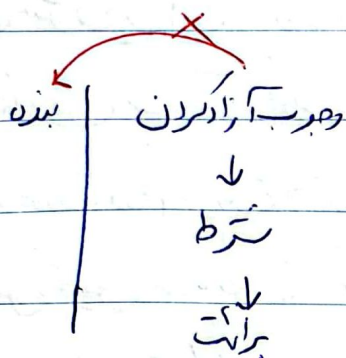 وجوب آزاد کردن | بنده
↓
شرط
↓
برائت